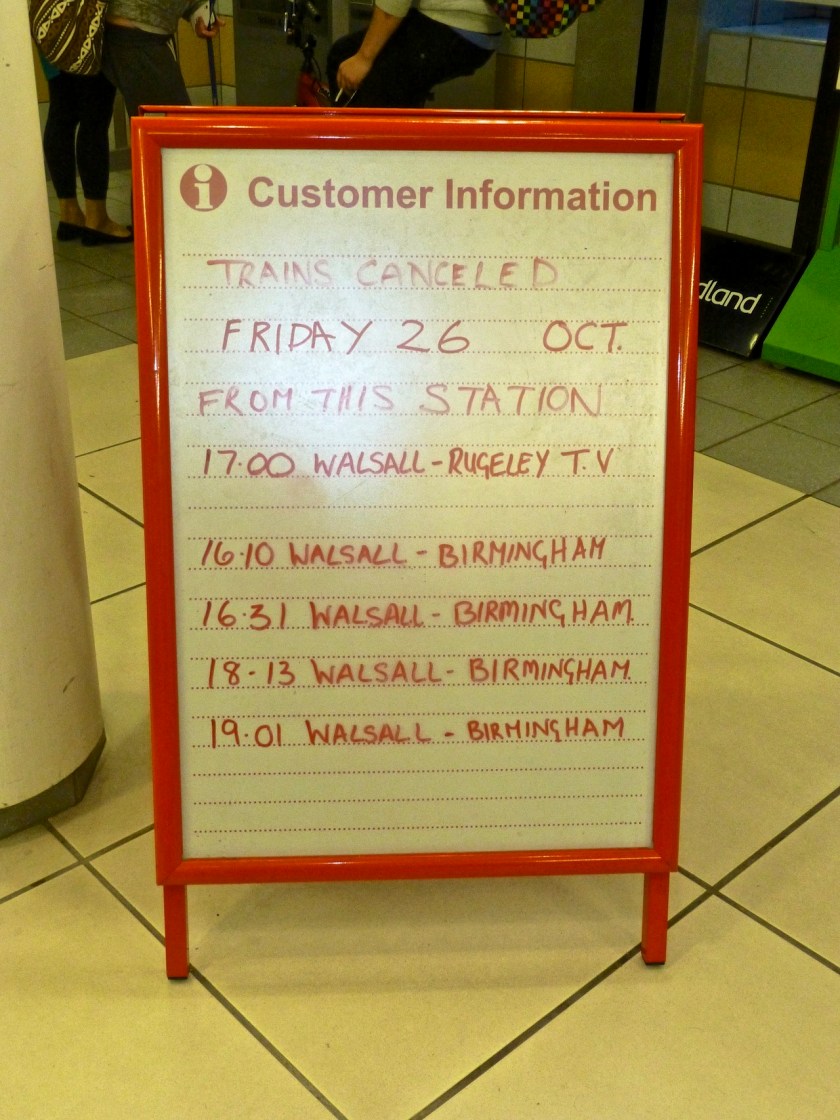 i Customer Information
TRAINS CANCELED
FRIDAY 26 OCT.
FROM THIS STATION
17.00 WALSALL - RUGELEY T.V
16.10 WALSALL - BIRMINGHAM
16.31 WALSALL - BIRMINGHAM.
18-13 WALSALL - BIRMINGHAM.
19.01 WALSALL - BIRMINGHAM
dland